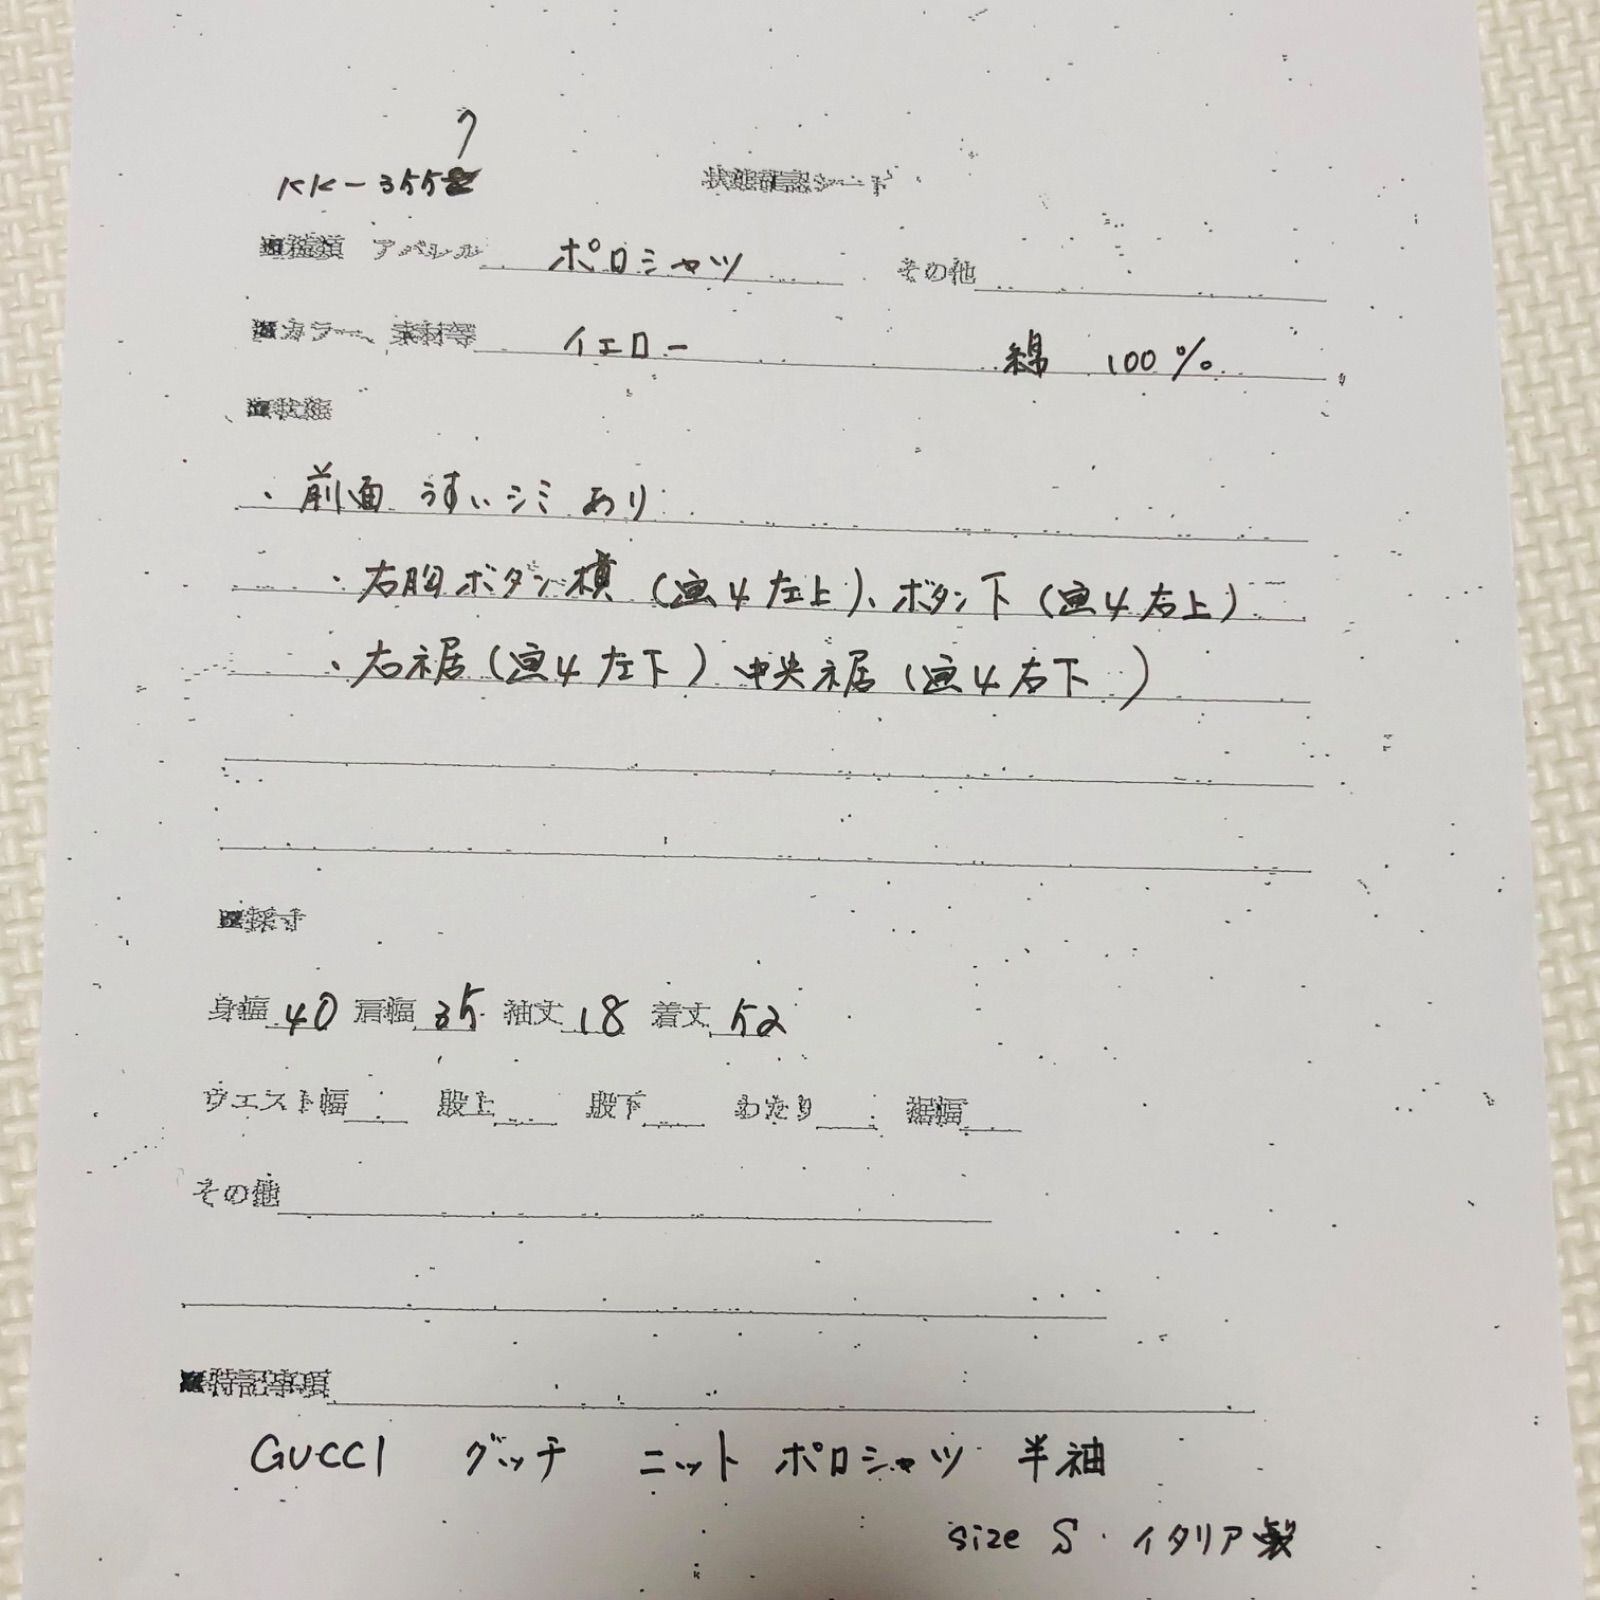 7
KK-355
状態確認シード
■種類 アパレル ポロシャツ その他
■カラー、素材等 イエロー 綿 100%
■状態
・前面 うすいシミあり
・右胸ボタン横(画4左上)、ボタン下(画4右上)
・右裾(画4左下)中央裾(画4右下)
■採寸
身幅 40 肩幅 35 袖丈 18 着丈 52
ウエスト幅 股上 股下 わたり 裾幅
その他
■特記事項
GUCCI グッチ ニット ポロシャツ 半袖
size S・イタリア製